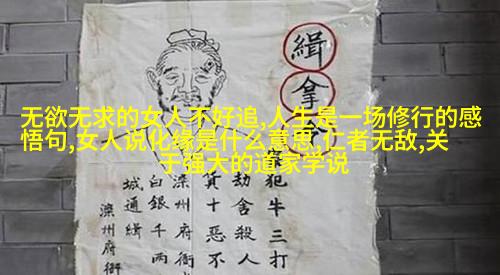 无欲无求的女人不好追,人生是一场修行的感
悟句,女人说化缘是什么意思,仁者无敌,关
于强大的道家学说
緝拿
犯牛三打
劫舍殺人
十惡不
滦州府衙
白銀千兩
城通緝
滦州府衙